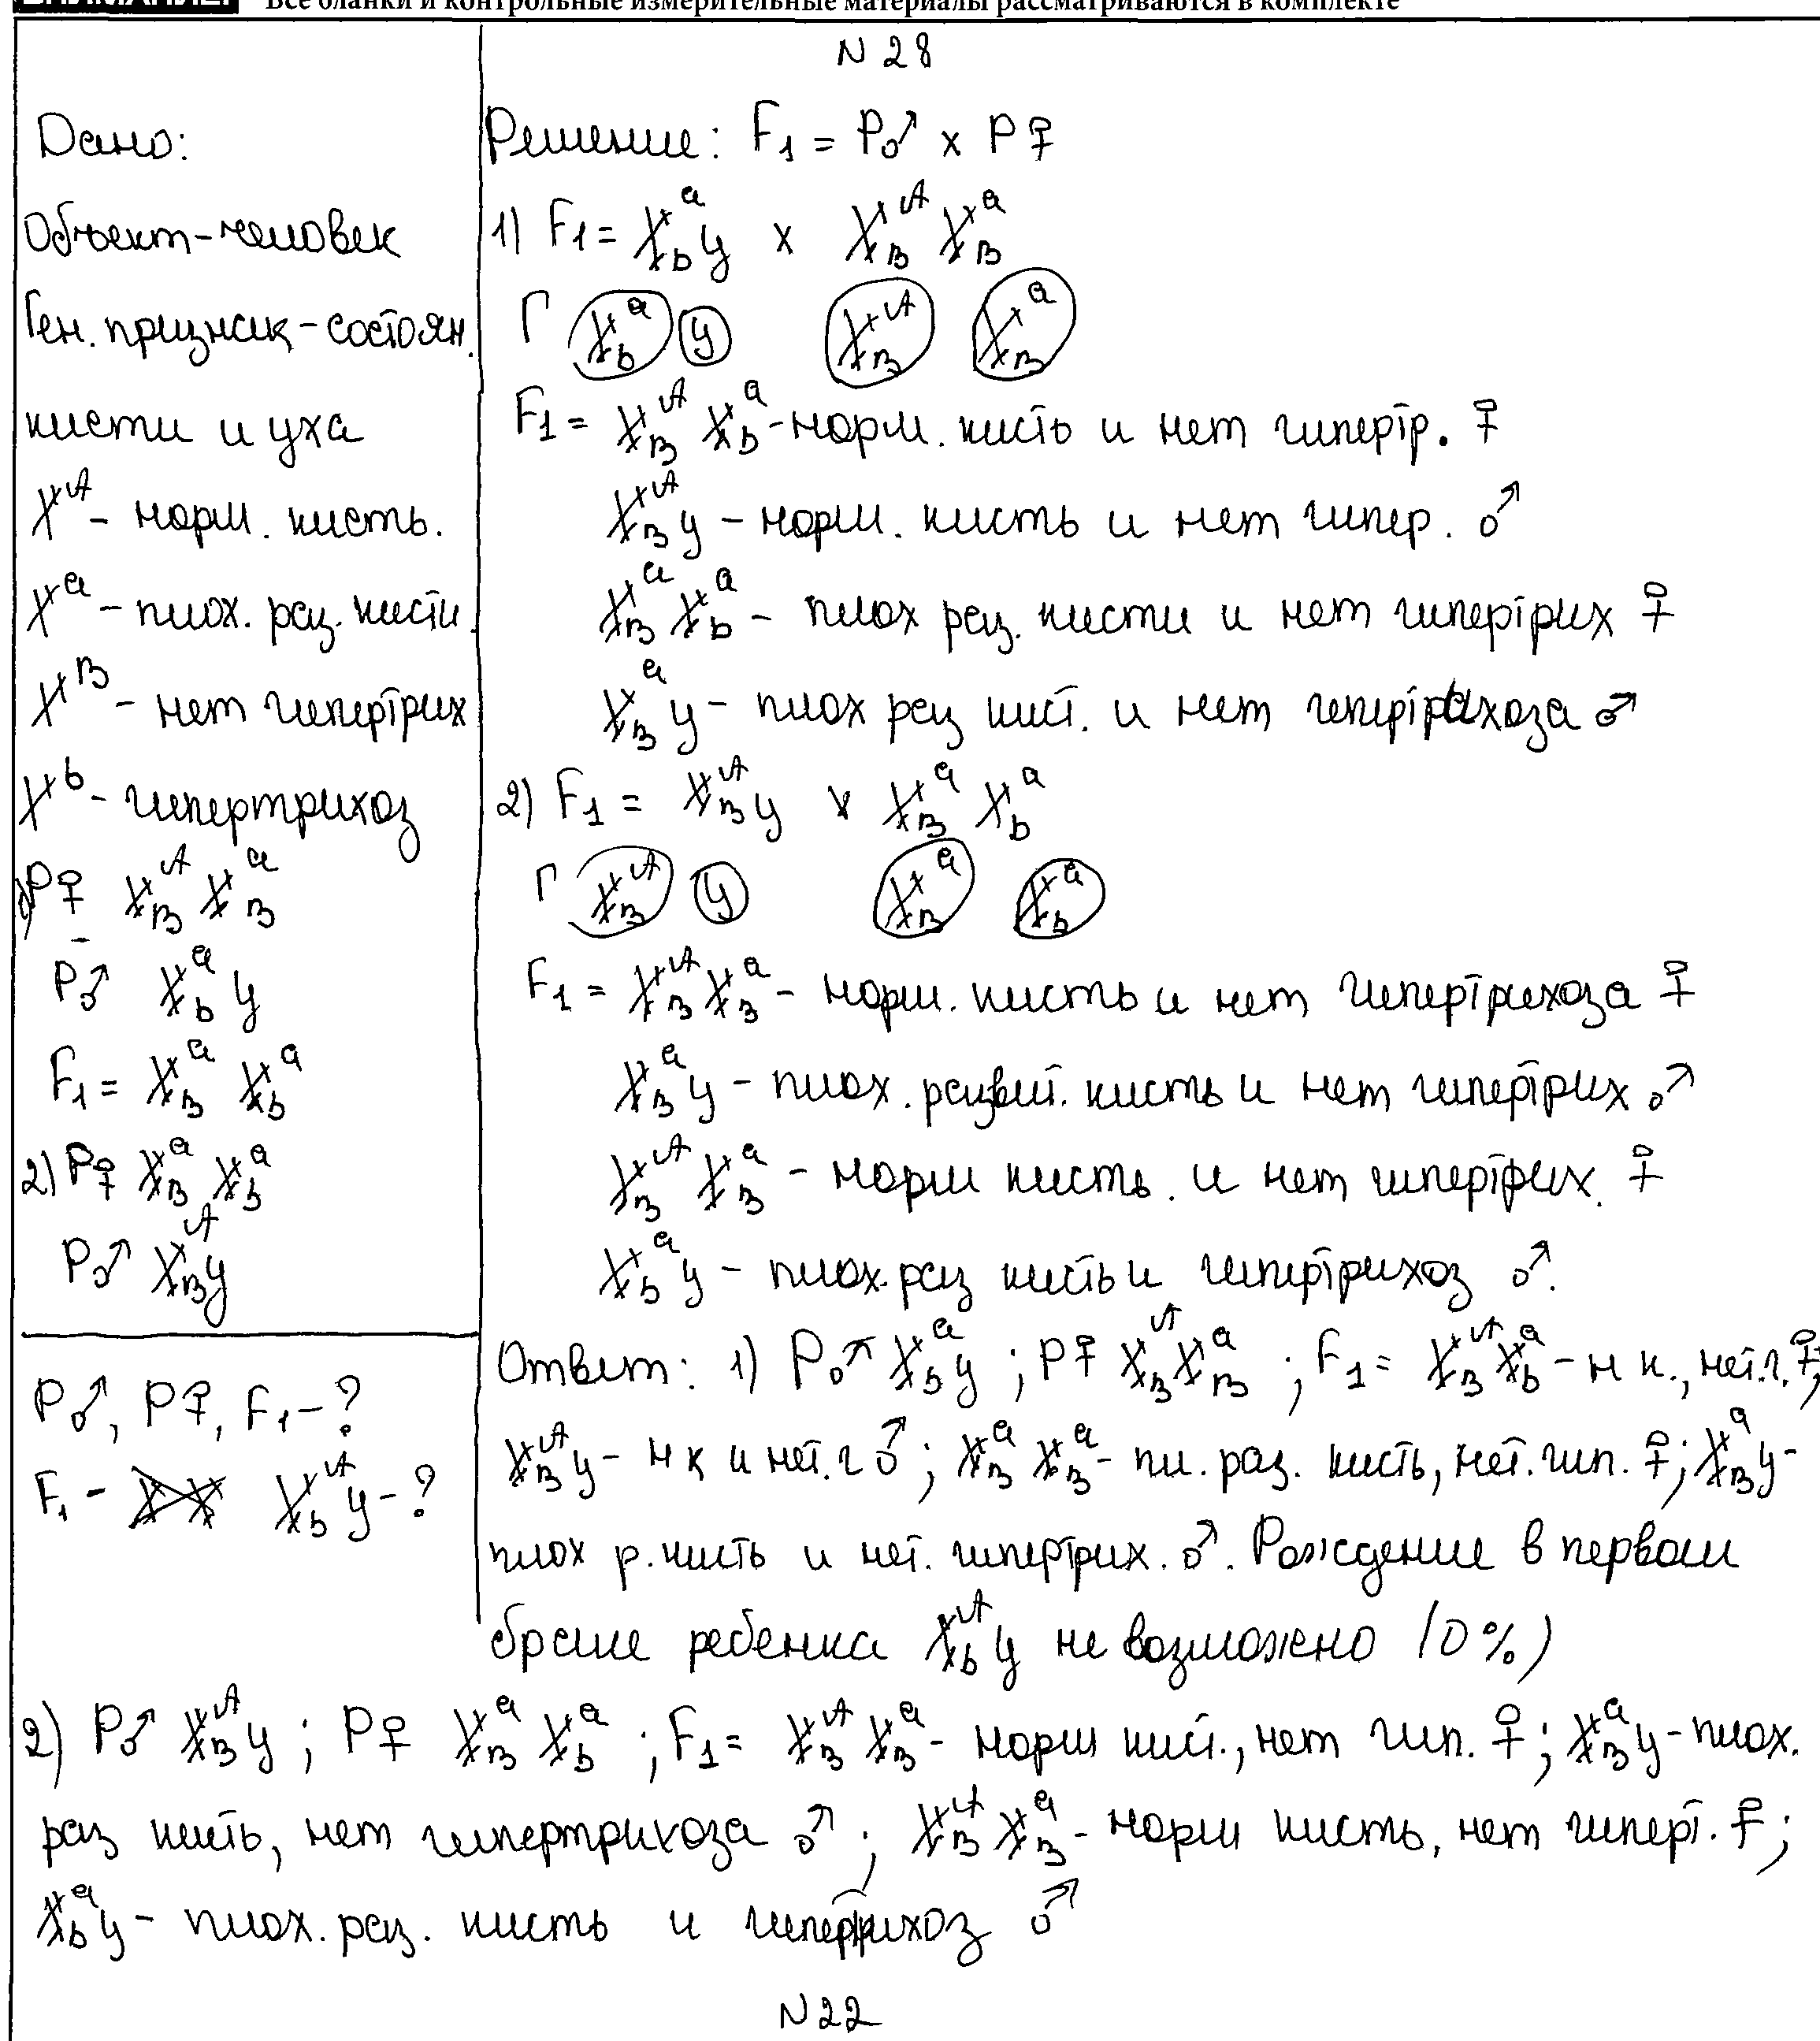 ВНИМАНИЕ! Все бланки и контрольные измерительные материалы рассматриваются в комплекте
N 28
Дано:
Объект-человек
Ген. признак - состоян.
кисти и уха
X^A - норм. кисть.
X^a - плох. раз. кисти.
X^B - нет гипертрих
X^b - гипертрихоз
1) P♀ X^A_B X^a_B
P♂ X^a_b y
F1 = X^a_B X^a_b
2) P♀ X^a_B X^a_b
P♂ X^A_B y
P♂, P♀, F1 - ?
F1 - X^A_b y - ?
Решение: F1 = P♂ x P♀
1) F1 = X^a_b y x X^A_B X^a_B
Г X^a_b y X^A_B X^a_B
F1 = X^A_B X^a_b - норм. кисть и нет гипертр. ♀
X^A_B y - норм. кисть и нет гипер. ♂
X^a_B X^a_b - плох раз. кисти и нет гипертрих ♀
X^a_B y - плох раз кист. и нет гипертрихоза ♂
2) F1 = X^A_B y x X^a_B X^a_b
Г X^A_B y X^a_B X^a_b
F1 = X^A_B X^a_B - норм. кисть и нет гипертрихоза ♀
X^a_B y - плох. развит. кисть и нет гипертрих ♂
X^A_B X^a_B - норм кисть. и нет гипертрих. ♀
X^a_b y - плох. раз кисть и гипертрихоз ♂.
Ответ: 1) P♂ X^a_b y ; P♀ X^A_B X^a_B ; F1 = X^A_B X^a_b - н к., нет.г. ♀;
X^A_B y - н к и нет. г ♂; X^a_B X^a_B - пл. раз. кисть, нет. гип. ♀; X^a_B y -
плох р. кисть и нет. гипертрих. ♂. Рождение в первом
браке ребенка X^A_b y не возможно (0%)
2) P♂ X^A_B y ; P♀ X^a_B X^a_b ; F1 = X^A_B X^a_B - норм кист., нет гип. ♀; X^a_B y - плох.
раз кисть, нет гипертрихоза ♂; X^A_B X^a_B - норм кисть, нет гиперт. ♀;
X^a_b y - плох. раз. кисть и гипертрихоз ♂
N 22